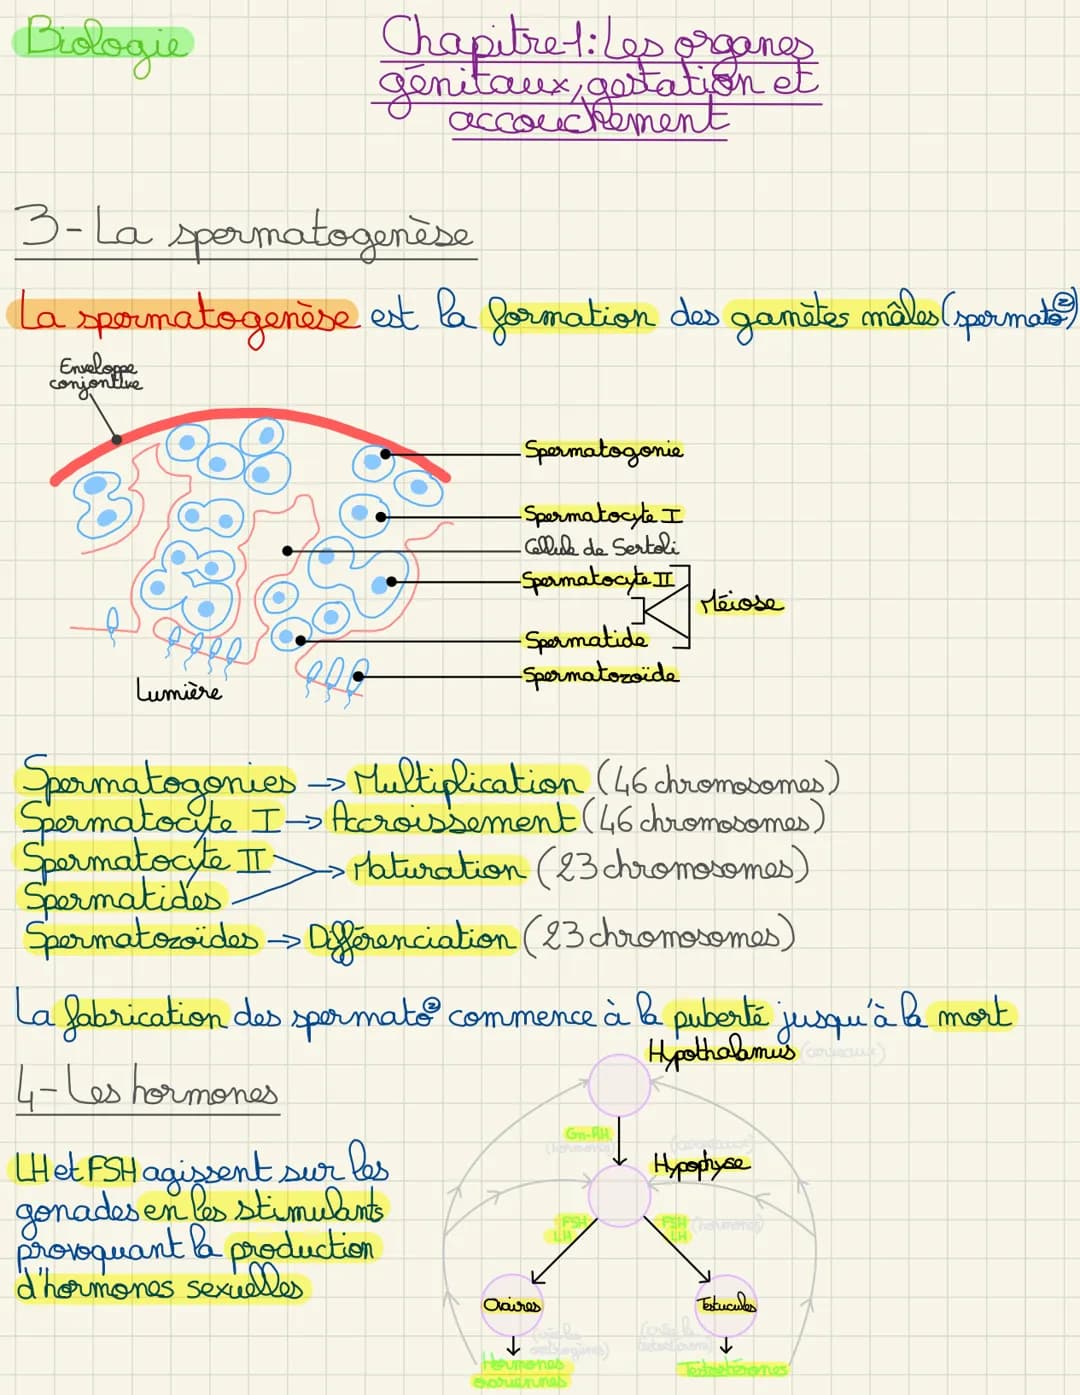 Biologie
Chapitre 1: Les organes
génitaux, gestation et
accouchement
3- La spermatogenèse
La spermatogenèse est la formation des gamètes mâles (spermato②)
Enveloppe
conjonctive
Spermatogonie
Spermatocyte I
Cellule de Sertoli
Spermatocyte II
Méiose
Spermatide
Spermatozoïde
Lumière
Spermatogonies → Multiplication (46 chromosomes)
Spermatocyte I → Accroissement (46 chromosomes)
Spermatocyte II
→ Maturation (23 chromosomes)
Spermatides
Spermatozoïdes → Différenciation (23 chromosomes)
La fabrication des spermato② commence à la puberté jusqu'à la mort
Hypothalamus (cerveaux)
4- Les hormones
Gn-RH
(hormones)
(cerveaux)
Hypophyse
LH et FSH agissent sur les
gonades en les stimulants
provoquant la production
d'hormones sexuelles
FSH
LH
FSH (hormones)
LH
Ovaires
Testucules
Hormones
ovariennes
Testostérones